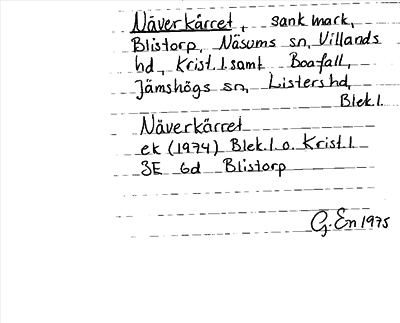 Näverkärret, sank mark,
Blistorp, Näsums sn, Villands
hd, Krist. l. samt Boafall,
Jämshögs sn, Listers hd,
Blek. l.
Näverkärret
ek (1974) Blek. l. o. Krist. l.
3E 6d Blistorp
G. En 1975